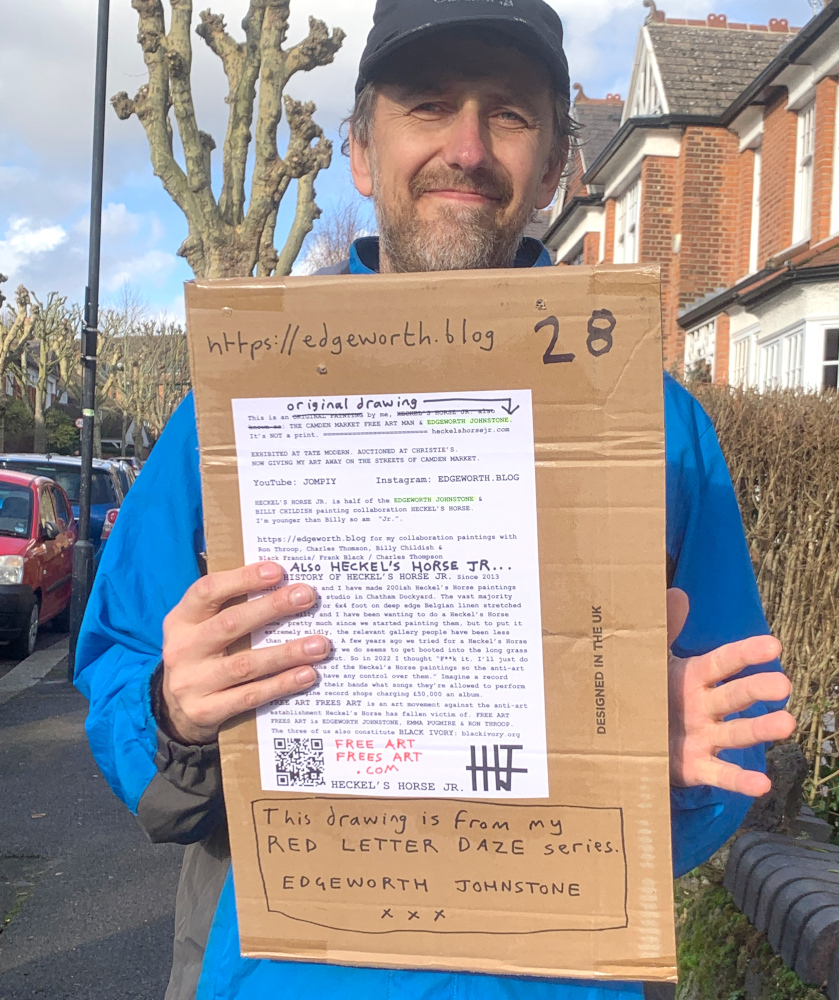 https://edgeworth.blog
28
original drawing
This is an ORIGINAL PAINTING by me, HECKEL'S HORSE JR. also
known as: THE CAMDEN MARKET FREE ART MAN & EDGEWORTH JOHNSTONE.
It's NOT a print. ========================== heckelshorsejr.com
EXHIBITED AT TATE MODERN. AUCTIONED AT CHRISTIE'S.
NOW GIVING MY ART AWAY ON THE STREETS OF CAMDEN MARKET.
YouTube: JOMPIY Instagram: EDGEWORTH.BLOG
HECKEL'S HORSE JR. is half of the EDGEWORTH JOHNSTONE &
BILLY CHILDISH painting collaboration HECKEL'S HORSE.
I'm younger than Billy so am "Jr.".
https://edgeworth.blog for my collaboration paintings with
Ron Throop, Charles Thomson, Billy Childish &
Black Francis/ Frank Black / Charles Thompson
ALSO HECKEL'S HORSE JR...
HISTORY OF HECKEL'S HORSE JR. Since 2013
and I have made 200ish Heckel's Horse paintings
studio in Chatham Dockyard. The vast majority
or 6x4 foot on deep edge Belgian linen stretched
and I have been wanting to do a Heckel's Horse
pretty much since we started painting them, but to put it
extremely mildly, the relevant gallery people have been less
than A few years ago we tried for a Heckel's Horse
we do seems to get booted into the long grass
So in 2022 I thought "F**k it. I'll just do
of the Heckel's Horse paintings so the anti-art
have any control over them." Imagine a record
their bands what songs they're allowed to perform
record shops charging £50,000 an album.
FREE ART FREES ART is an art movement against the anti-art
establishment Heckel's Horse has fallen victim of. FREE ART
FREES ART is EDGEWORTH JOHNSTONE, EMMA PUGMIRE & RON THROOP.
The three of us also constitute BLACK IVORY: blackivory.org
FREE ART
FREES ART
.COM
HECKEL'S HORSE JR.
DESIGNED IN THE UK
This drawing is from my
RED LETTER DAZE series.
EDGEWORTH JOHNSTONE
x x x